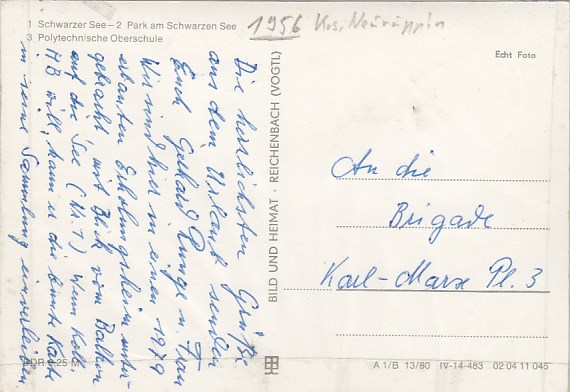 1 Schwarzer See – 2 Park am Schwarzen See
3 Polytechnische Oberschule
1956 Krs. Neuruppin
Echt Foto
Die herzlichsten Grüße
aus dem Urlaub senden
Euch Gerhard Runge u. Frau
Wir sind hier in einem 1979
erbauten Erholungsheim unter-
gebracht mit Blick vom Balkon
auf die See (Nr. 1) Wenn Koll.
HB will, kann er die bunte Karte
in seine Sammlung einverleiben.
BILD UND HEIMAT · REICHENBACH (VOGTL)
An die
Brigade
Karl-Marx Pl. 3
DDR 0,25 M
A 1/B 13/80 IV-14-483 02 04 11 045